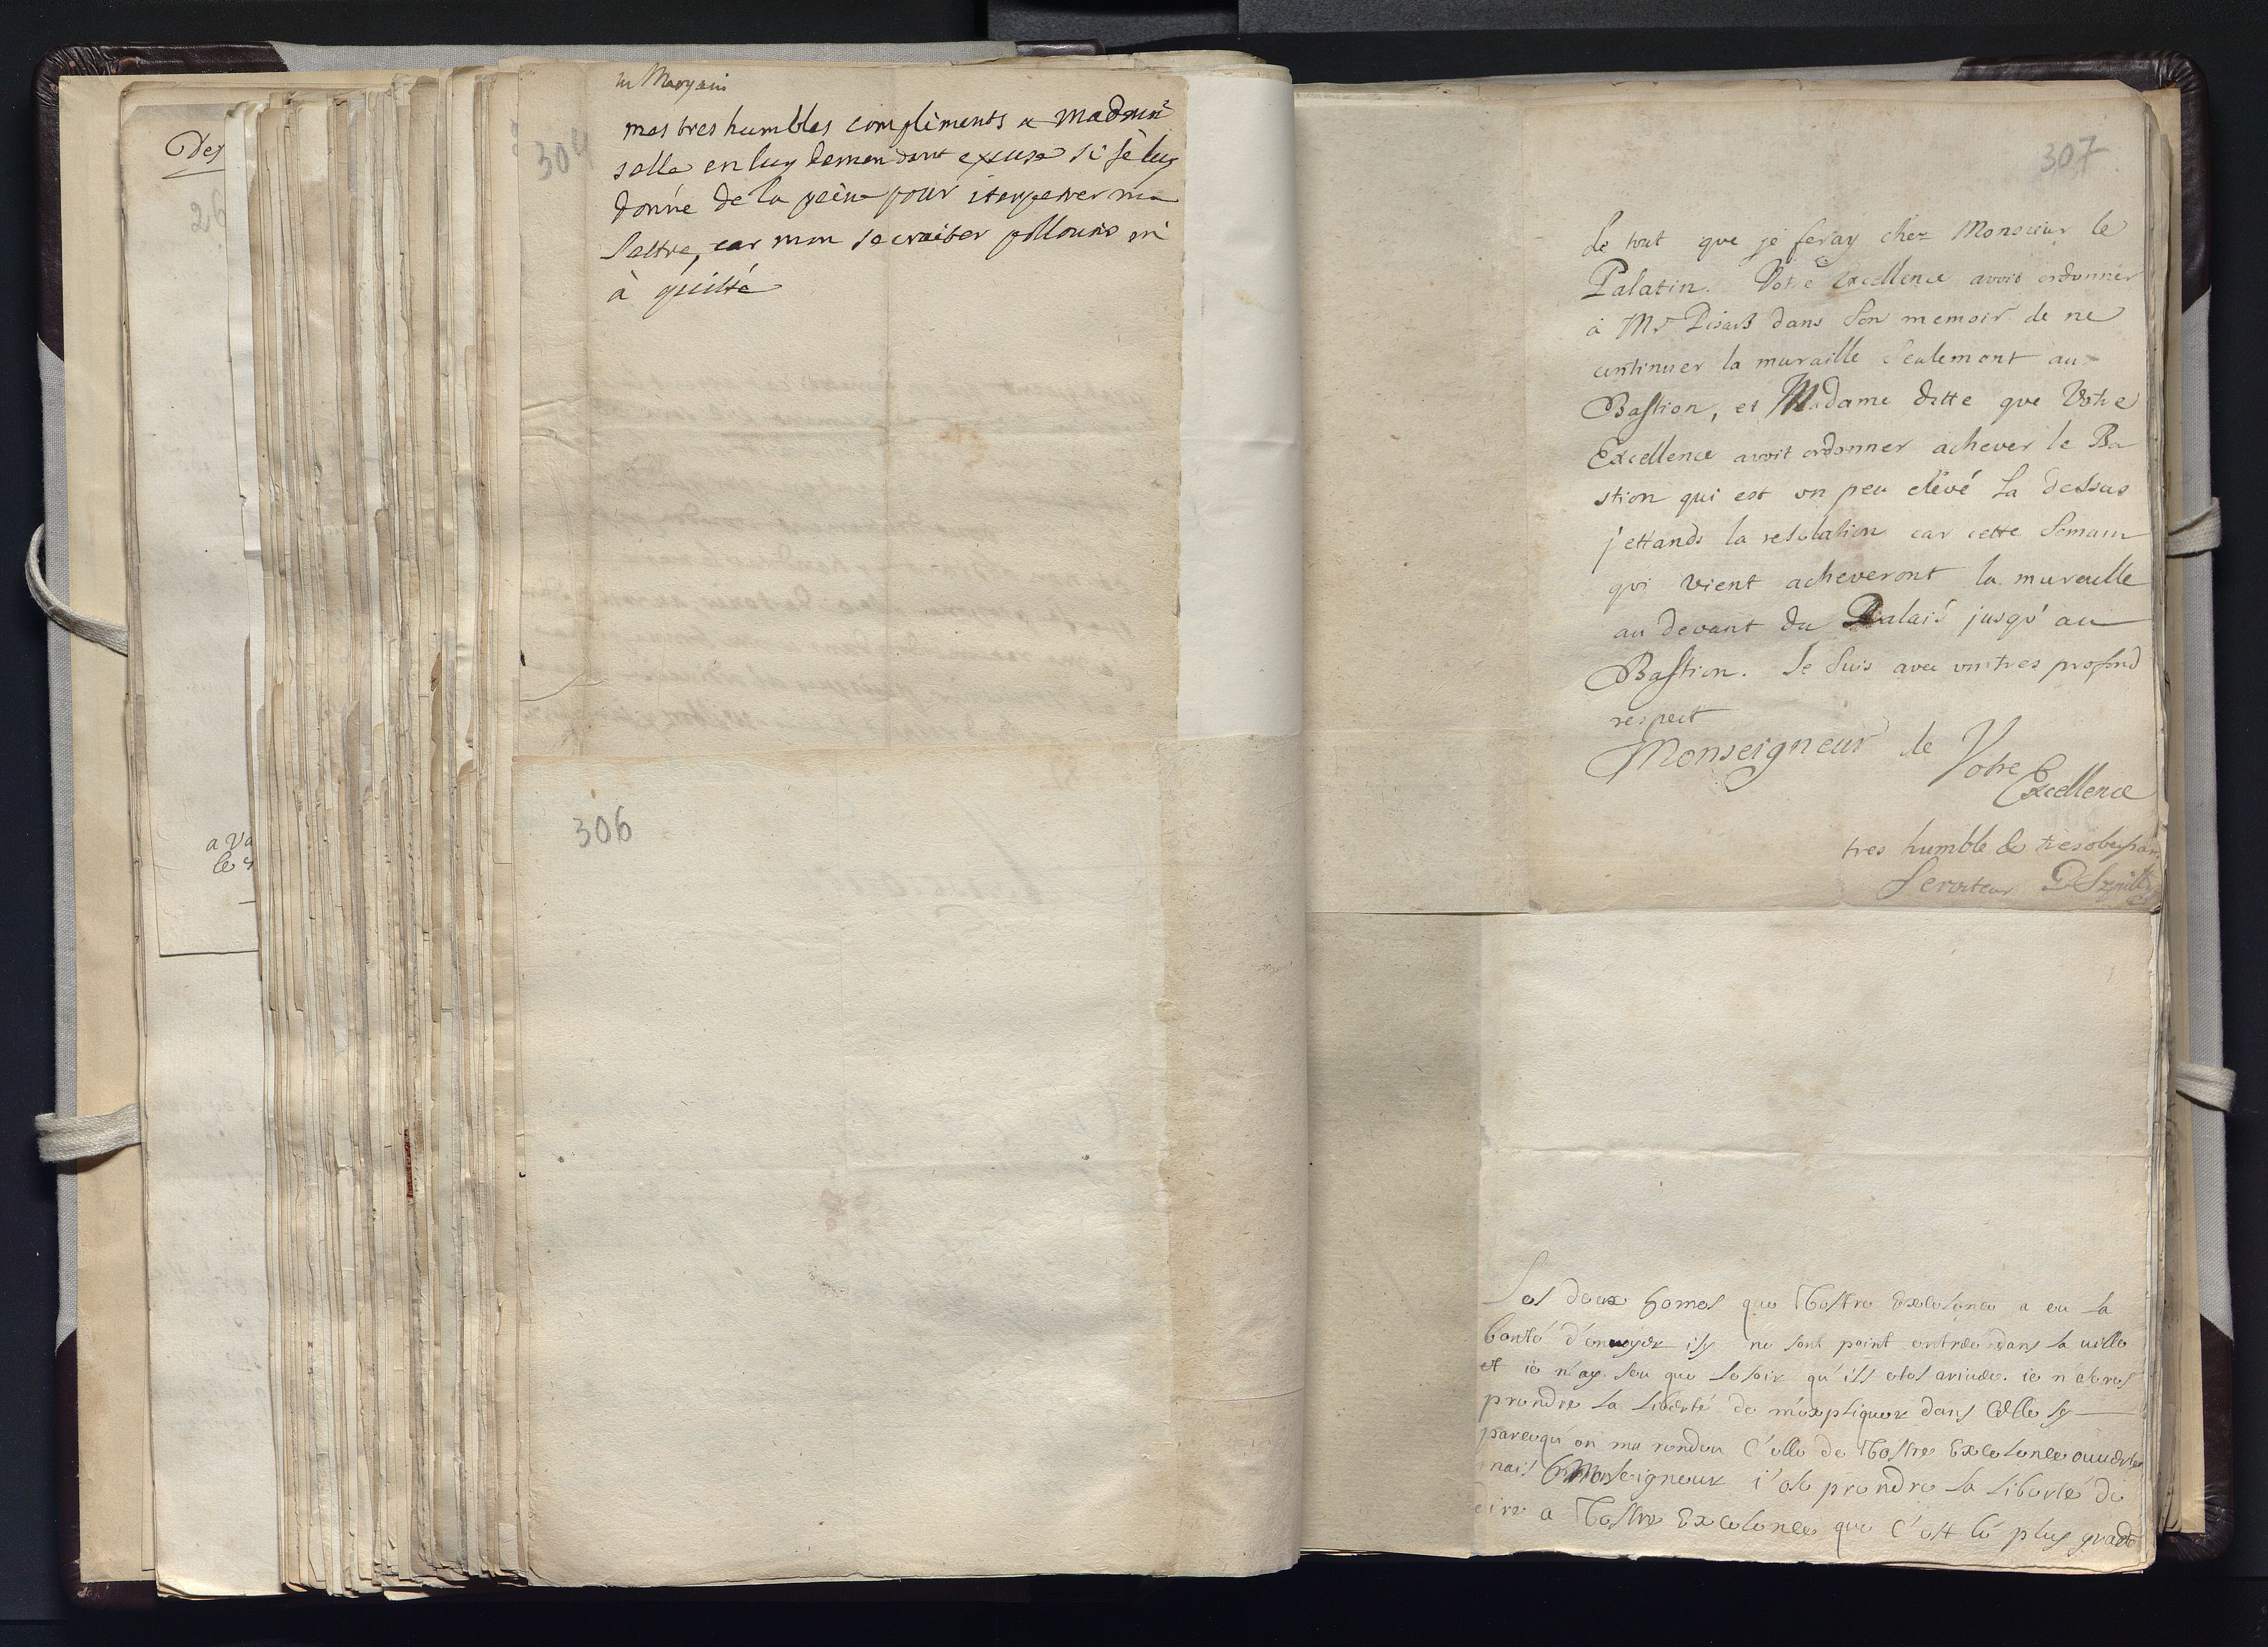 Des
26
a Va
le
304
mes tres humbles compliments a mademe
selle en luy demendant excuse si jè luy
donne de la peine pour ma
lettre, car mon secraiter pollouois mè
à quitté
306
307
de tout que je feray chez Monsieur le
Palatin. Votre Excellence avoit ordonner
à Mr dans son memoir de ne
continuer la muraille seulement au
Bastion, et Madame ditte que Votre
Excellence avoit ordonner achever le Ba
stion qui est un peu élevé La dessus
j'ettands la resolution car cette Semain
qui vient acheveront la muraille
au devant du Palais jusqu'au
Bastion. Je suis avec un tres profond
respect
Monseigneur de Votre
Excellence
tres humble & tres obeyssan
Serviteur
Les deux homes que Vostre Excelence a eu la
bonté d'envoyer isy ne sont point entrée dans la ville
et ie n'ay seu que le soir qu'ils etes arivée. ie n'
prendre la liberté de m'expliquer dans celle sy
parcequ'on ma rendeu celle de Vostre Excelence ouverte
mais Monseigneur i'ose prendre la liberté de
dire a Vostre Excelence que c'est lé plus grade